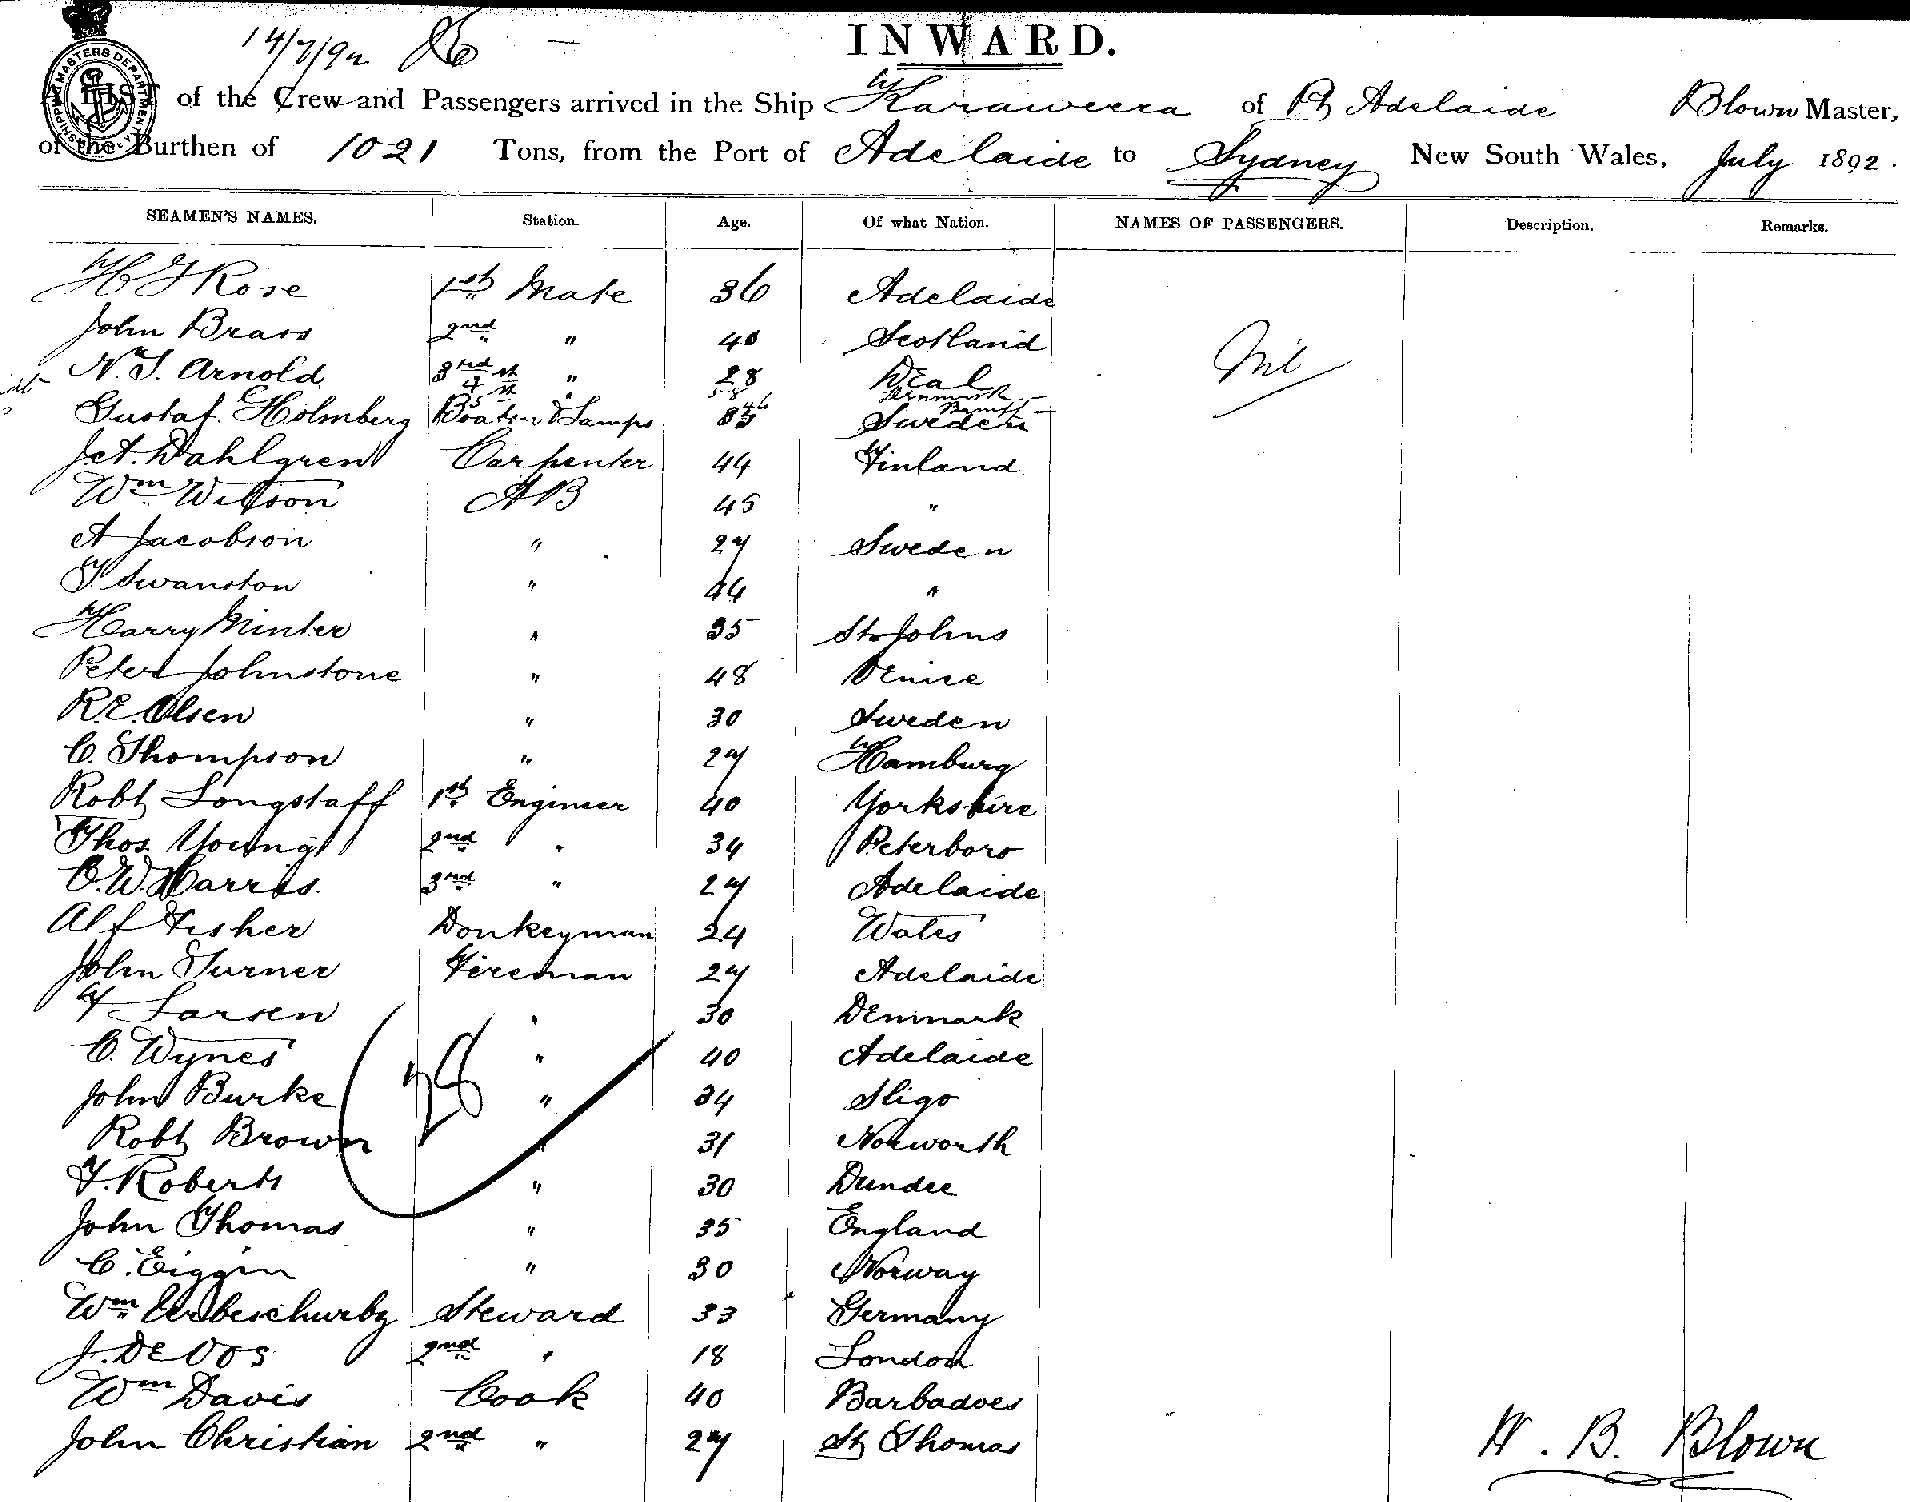 14/7/92
INWARD.
A LIST of the Crew and Passengers arrived in the Ship Karaweera of Pt Adelaide Blown Master,
of the Burthen of 1021 Tons, from the Port of Adelaide to Sydney New South Wales, July 1892.
SEAMEN'S NAMES. Station. Age. Of what Nation. NAMES OF PASSENGERS. Description. Remarks.
H J Rose 1st Mate 36 Adelaide
John Brass 2nd " 40 Scotland Nil
N. S. Arnold 3rd " 28 Deal
4th " Denmark
Gustaf. Holmberg Boatsn & Lamps Sweden
J. A. Dahlgren Carpenter 44 Finland
Wm Wilson AB 45 "
A Jacobson " 27 Sweden
J Swanston " 44 "
Harry Minter " 35 St Johns
Peter Johnstone " 48 Venice
R. E. Olsen " 30 Sweden
C. Thompson " 27 Hamburg
Robt Longstaff 1st Engineer 40 Yorkshire
Thos Young 2nd " 34 Peterboro
C. W. Harris. 3rd " 27 Adelaide
Alf Fisher Donkeyman 24 Wales
John Turner Fireman 27 Adelaide
F Larsen " 30 Denmark
C. Wynes " 40 Adelaide
John Burke 28 " 34 Sligo
Robt Brown " 31 Norworth
F. Roberts " 30 Dundee
John Thomas " 35 England
C. Eiggin " 30 Norway
Wm Steward 33 Germany
J. De Vos 2nd " 18 London
Wm Davis Cook 40 Barbadoes
John Christian 2nd " 27 St Thomas
W. B. Blown